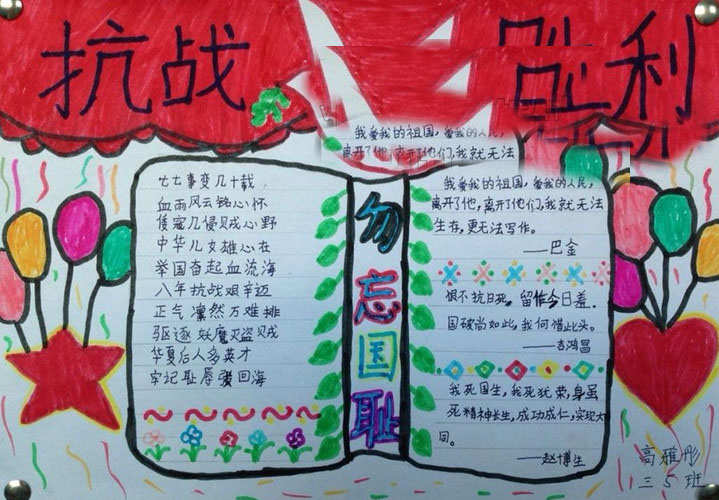 抗战胜利
我爱我的祖国,爱我的人民,
离开了他,离开了他们,我就无法
七七事变几十载
血雨风云铭心怀
倭寇几侵贼心野
中华儿女雄心在
举国奋起血流海
八年抗战艰辛迈
正气凛然万难排
驱逐妖魔灭盗贼
华夏后人多英才
牢记耻辱爱回海
勿忘国耻
我爱我的祖国,爱我的人民,
离开了他,离开了他们,我就无法
生存,更无法写作。
——巴金
恨不抗日死,留作今日羞。
国破尚如此,我何惜此头。
——吉鸿昌
我死国生,我死犹荣,身虽
死精神长生,成功成仁,实现大
同。
——赵博生
高雅彤
三5班